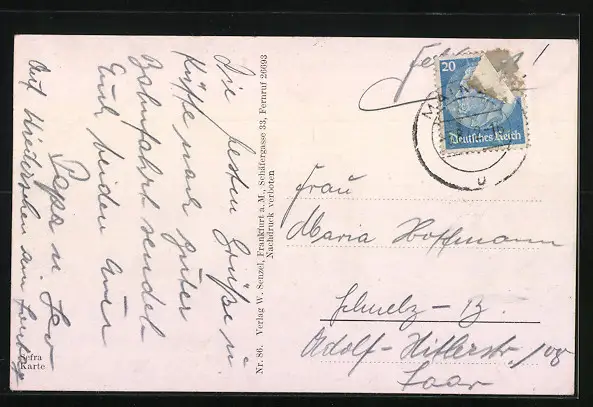 Die besten Grüße u
Küsse nach guter
Bahnfahrt sendet
Euch beiden Euer
Papa u. Leo
Auf Wiedersehen am Sonntag
Nr. 86. Verlag W. Senzel, Frankfurt a. M., Schäfergasse 33, Fernruf 26693
Nachdruck verboten
Karte
20
Deutsches Reich
u
Frau
Maria Hoffmann
Schmelz - B.
Adolf-Hitlerstr. 100
Saar